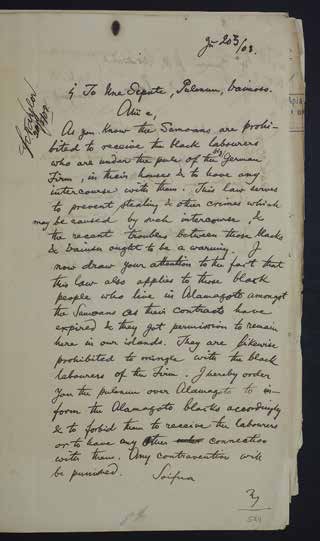 To the Pulenuu, Vaimoso.
As you know the Samoans are prohi-
bited to receive the black labourers
who are under the rule of the German
Firm, in their houses & to have any
intercourse with them. This law serves
to prevent stealing & other crimes which
may be caused by such intercourse, &
the recent troubles between those blacks
& ought to be a warning. I
now draw your attention to the fact that
this law also applies to those black
people who live in Alamagoto amongst
the Samoans as their contracts have
expired & they got permission to remain
here in our islands. They are likewise
prohibited to mingle with the black
labourers of the Firm. I hereby order
you the pulenuu over Alamagoto to in-
form the Alamagoto blacks accordingly
& to forbid them to receive the labourers
or to have any other connection
with them. Any contravention will
be punished. Soifua